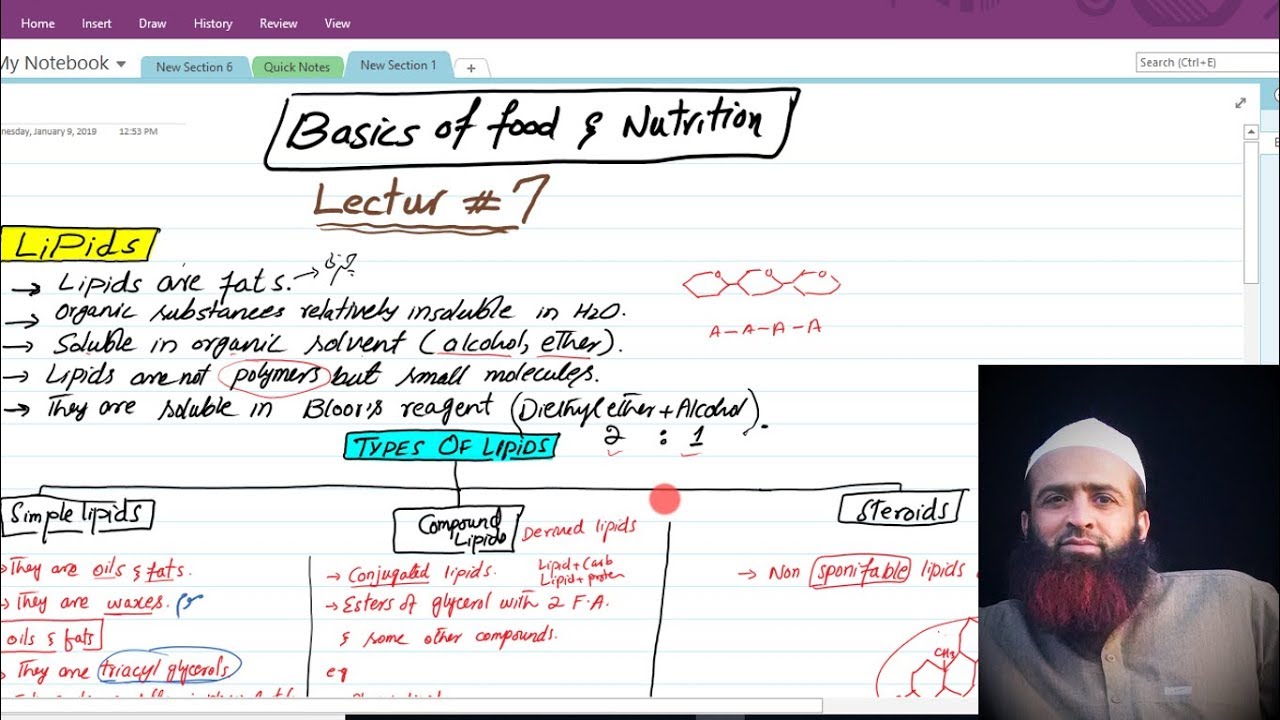 Home Insert Draw History Review View
My Notebook New Section 6 Quick Notes New Section 1 + Search (Ctrl+E)
nesday, January 9, 2019 12:53 PM
Basics of food & Nutrition
Lectur # 7
LiPids
→ Lipids are fats. →
→ organic substances relatively insoluble in H2O.
→ Soluble in organic solvent (alcohol, ether).
A-A-A-A
→ Lipids are not polymers but small molecules.
→ They are soluble in Bloor's reagent (Diethyl ether + Alcohol).
2 : 1
TYPES OF LIPIDS
Simple lipids
→ They are oils & fats.
→ They are waxes.
oils & fats
→ They are triacyl glycerols
Compound Lipids Derived lipids
→ Conjugated lipids. Lipid + Carb
Lipid + protein
→ Esters of glycerol with 2 F.A.
& some other compounds.
eg
Steroids
→ Non sponifable lipids
CH3